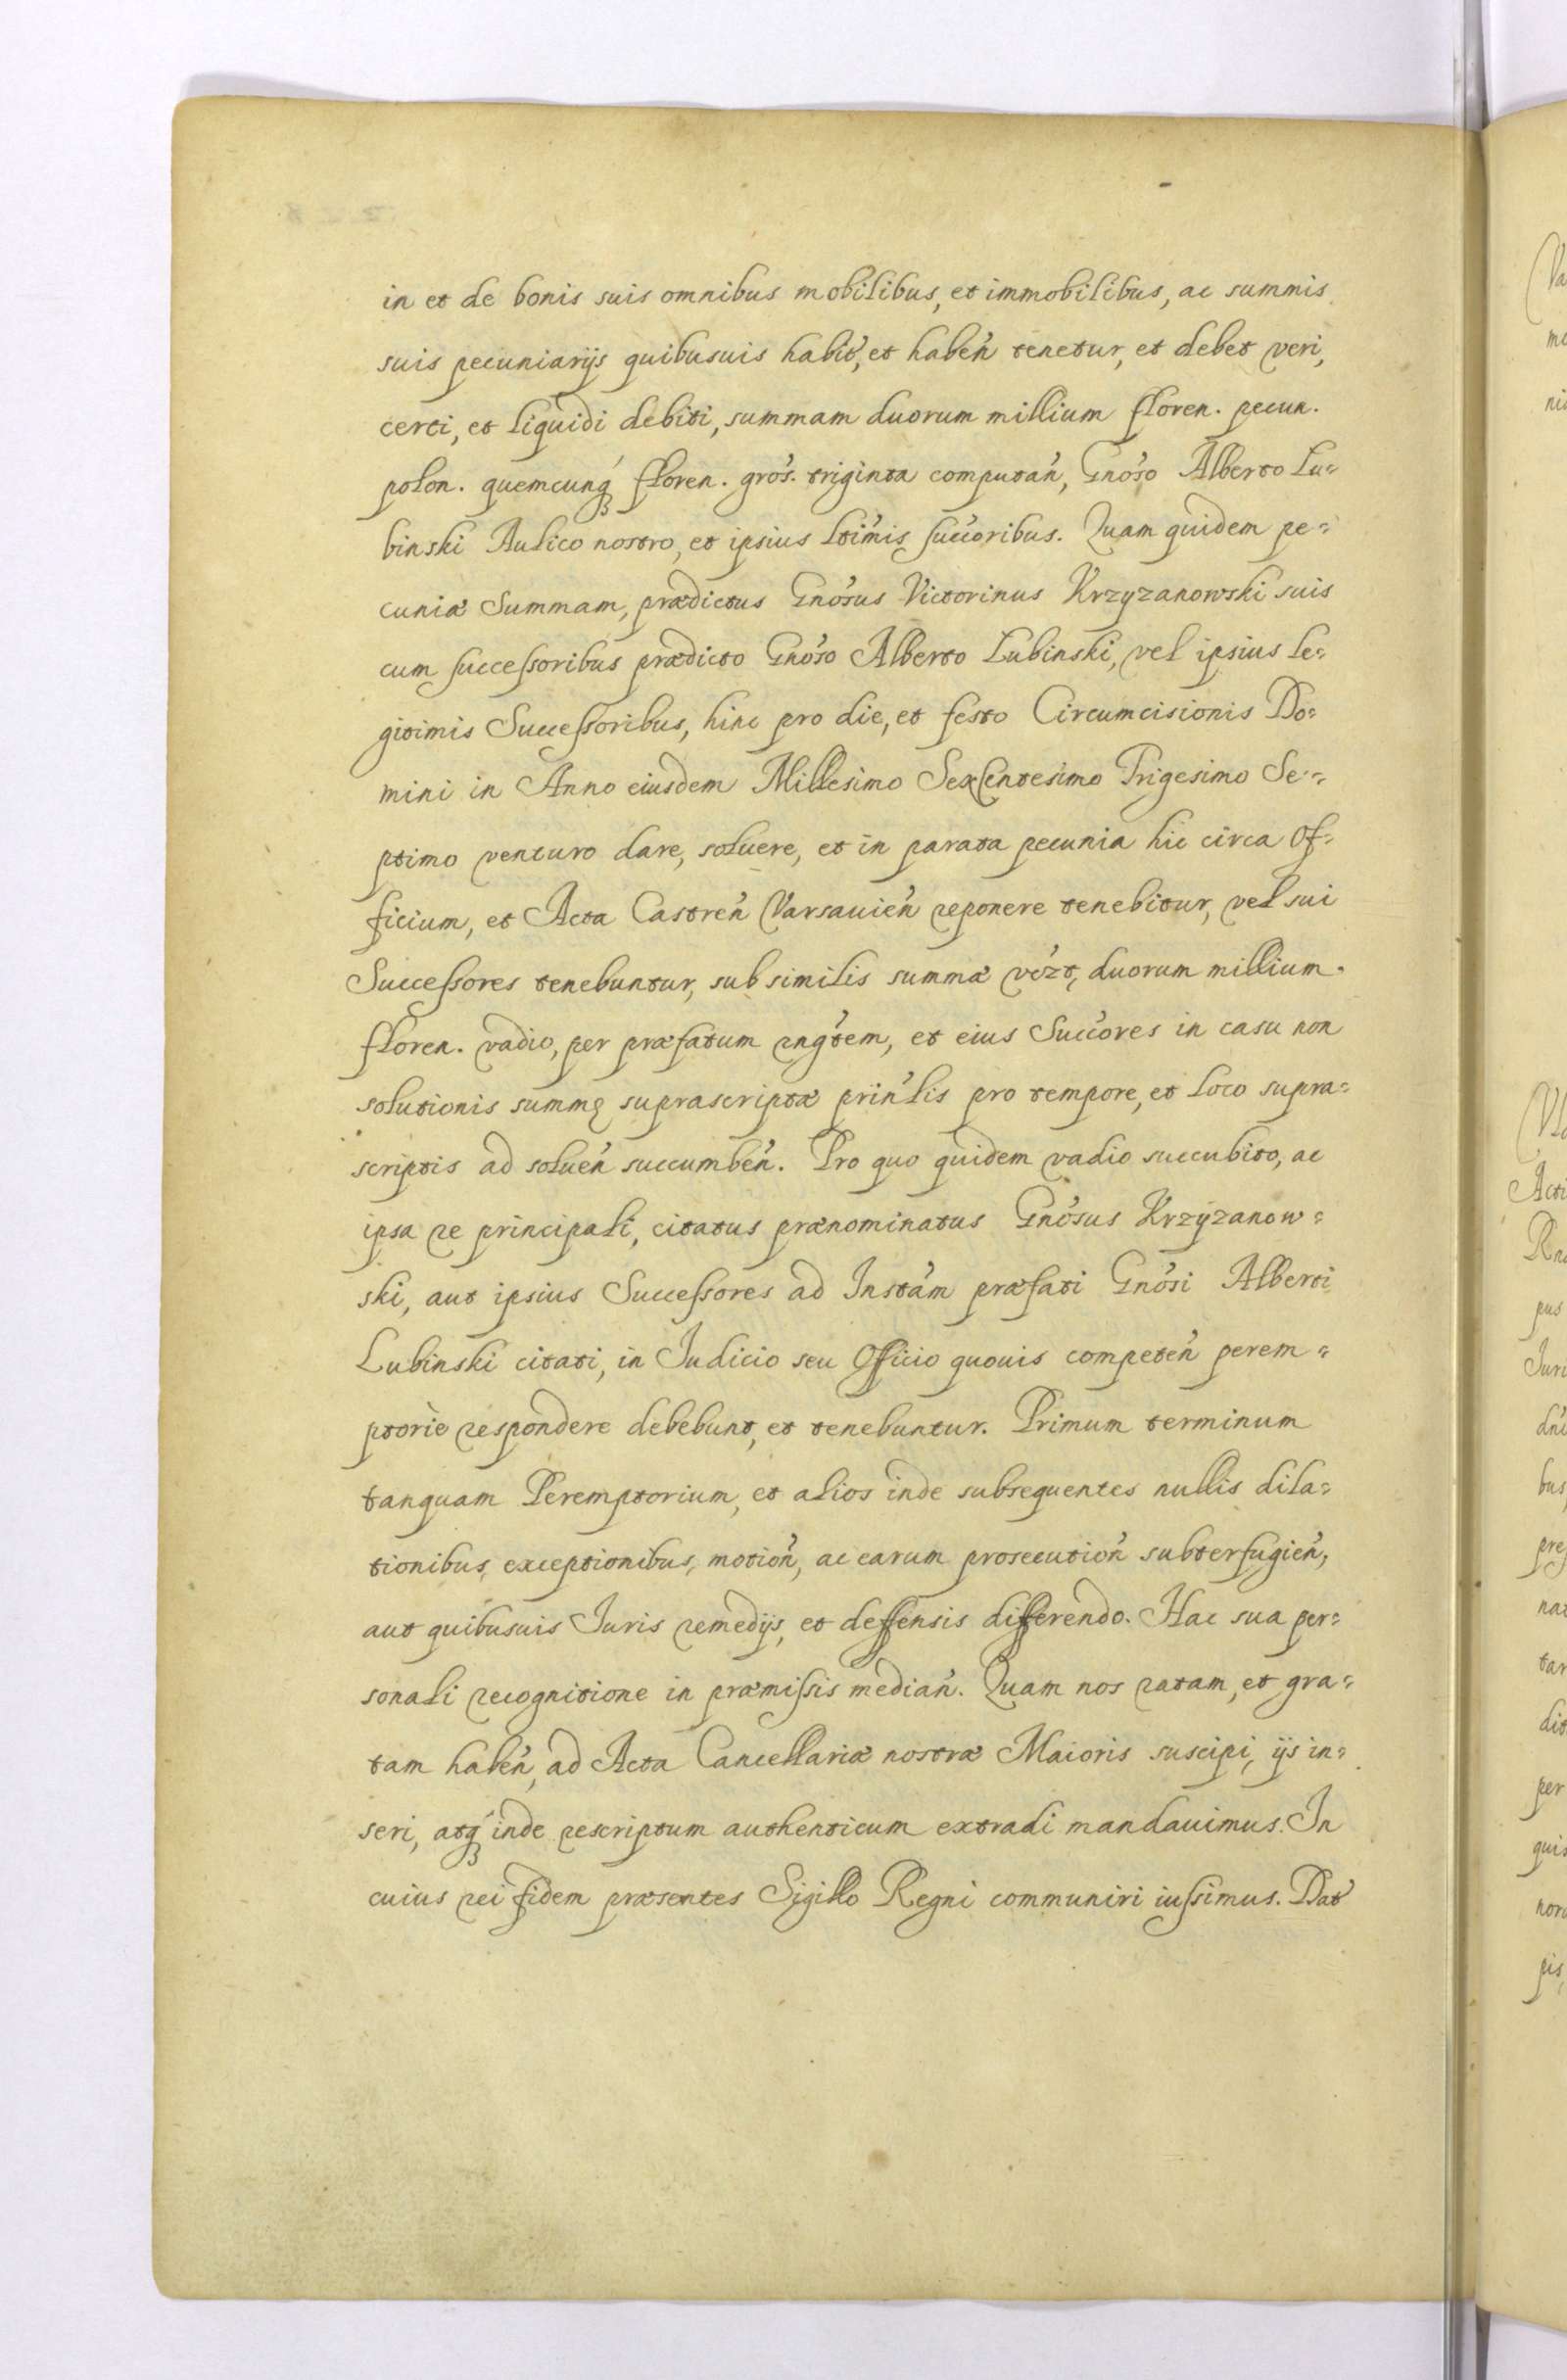 in et de bonis suis omnibus mobilibus, et immobilibus, ac summis
suis pecuniarijs quibusuis habit́, et habeń tenetur, et debet veri,
certi, et liquidi debiti, summam duorum millium floren. pecun.
polon. quemcunq́ꝫ floren. groś. triginta computań, Gnośo Alberto Lu=
binski Aulico nostro, et ipsius ltimís succ̓oribus. Quam quidem pe=
cuniæ Summam, prædictus Gnośus Victorinus Krzyzanowski suis
cum successoribus prædicto Gnośo Alberto Lubinski, vel ipsius le=
gitimis Successoribus, hinc pro die, et festo Circumcisionis Do=
mini in Anno eiusdem Millesimo Sexcentesimo Trigesimo Se=
ptimo venturo dare, soluere, et in parata pecunia hic circa Of=
ficium, et Acta Castreń Varsauień reponere tenebitur, vel sui
Successores tenebuntur, sub similis summæ vózt, duorum millium
floren. vadio, per præfatum rngt́em, et eius Succ̓ores in casu non
solutionis summę suprascriptæ prinĺis pro tempore, et loco supra=
scriptis ad solueń succumbeń. Pro quo quidem vadio succubito, ac
ipsa re principali, citatus prænominatus Gnośus Krzyzanow=
ski, aut ipsius Successores ad Instám præfati Gnośi Alberti
Lubinski citati, in Iudicio seu Officio quouis competeń perem=
ptoriè respondere debebunt, et tenebuntur. Primum terminum
tanquam Peremptorium, et alios inde subsequentes nullis dila=
tionibus, exceptionibus, motioń, ac earum prosecutioń subterfugień,
aut quibusuis Iuris remedijs, et deffensis differendo. Hac sua per=
sonali recognitione in præmissis mediań. Quam nos ratam, et gra=
tam habeń, ad Acta Cancellariæ nostræ Maioris suscipi, ijs in=
seri, atq́ꝫ inde rescriptum authenticum extradi mandauimus. In
cuius rei fidem præsentes Sigillo Regni communiri iussimus. Dat́